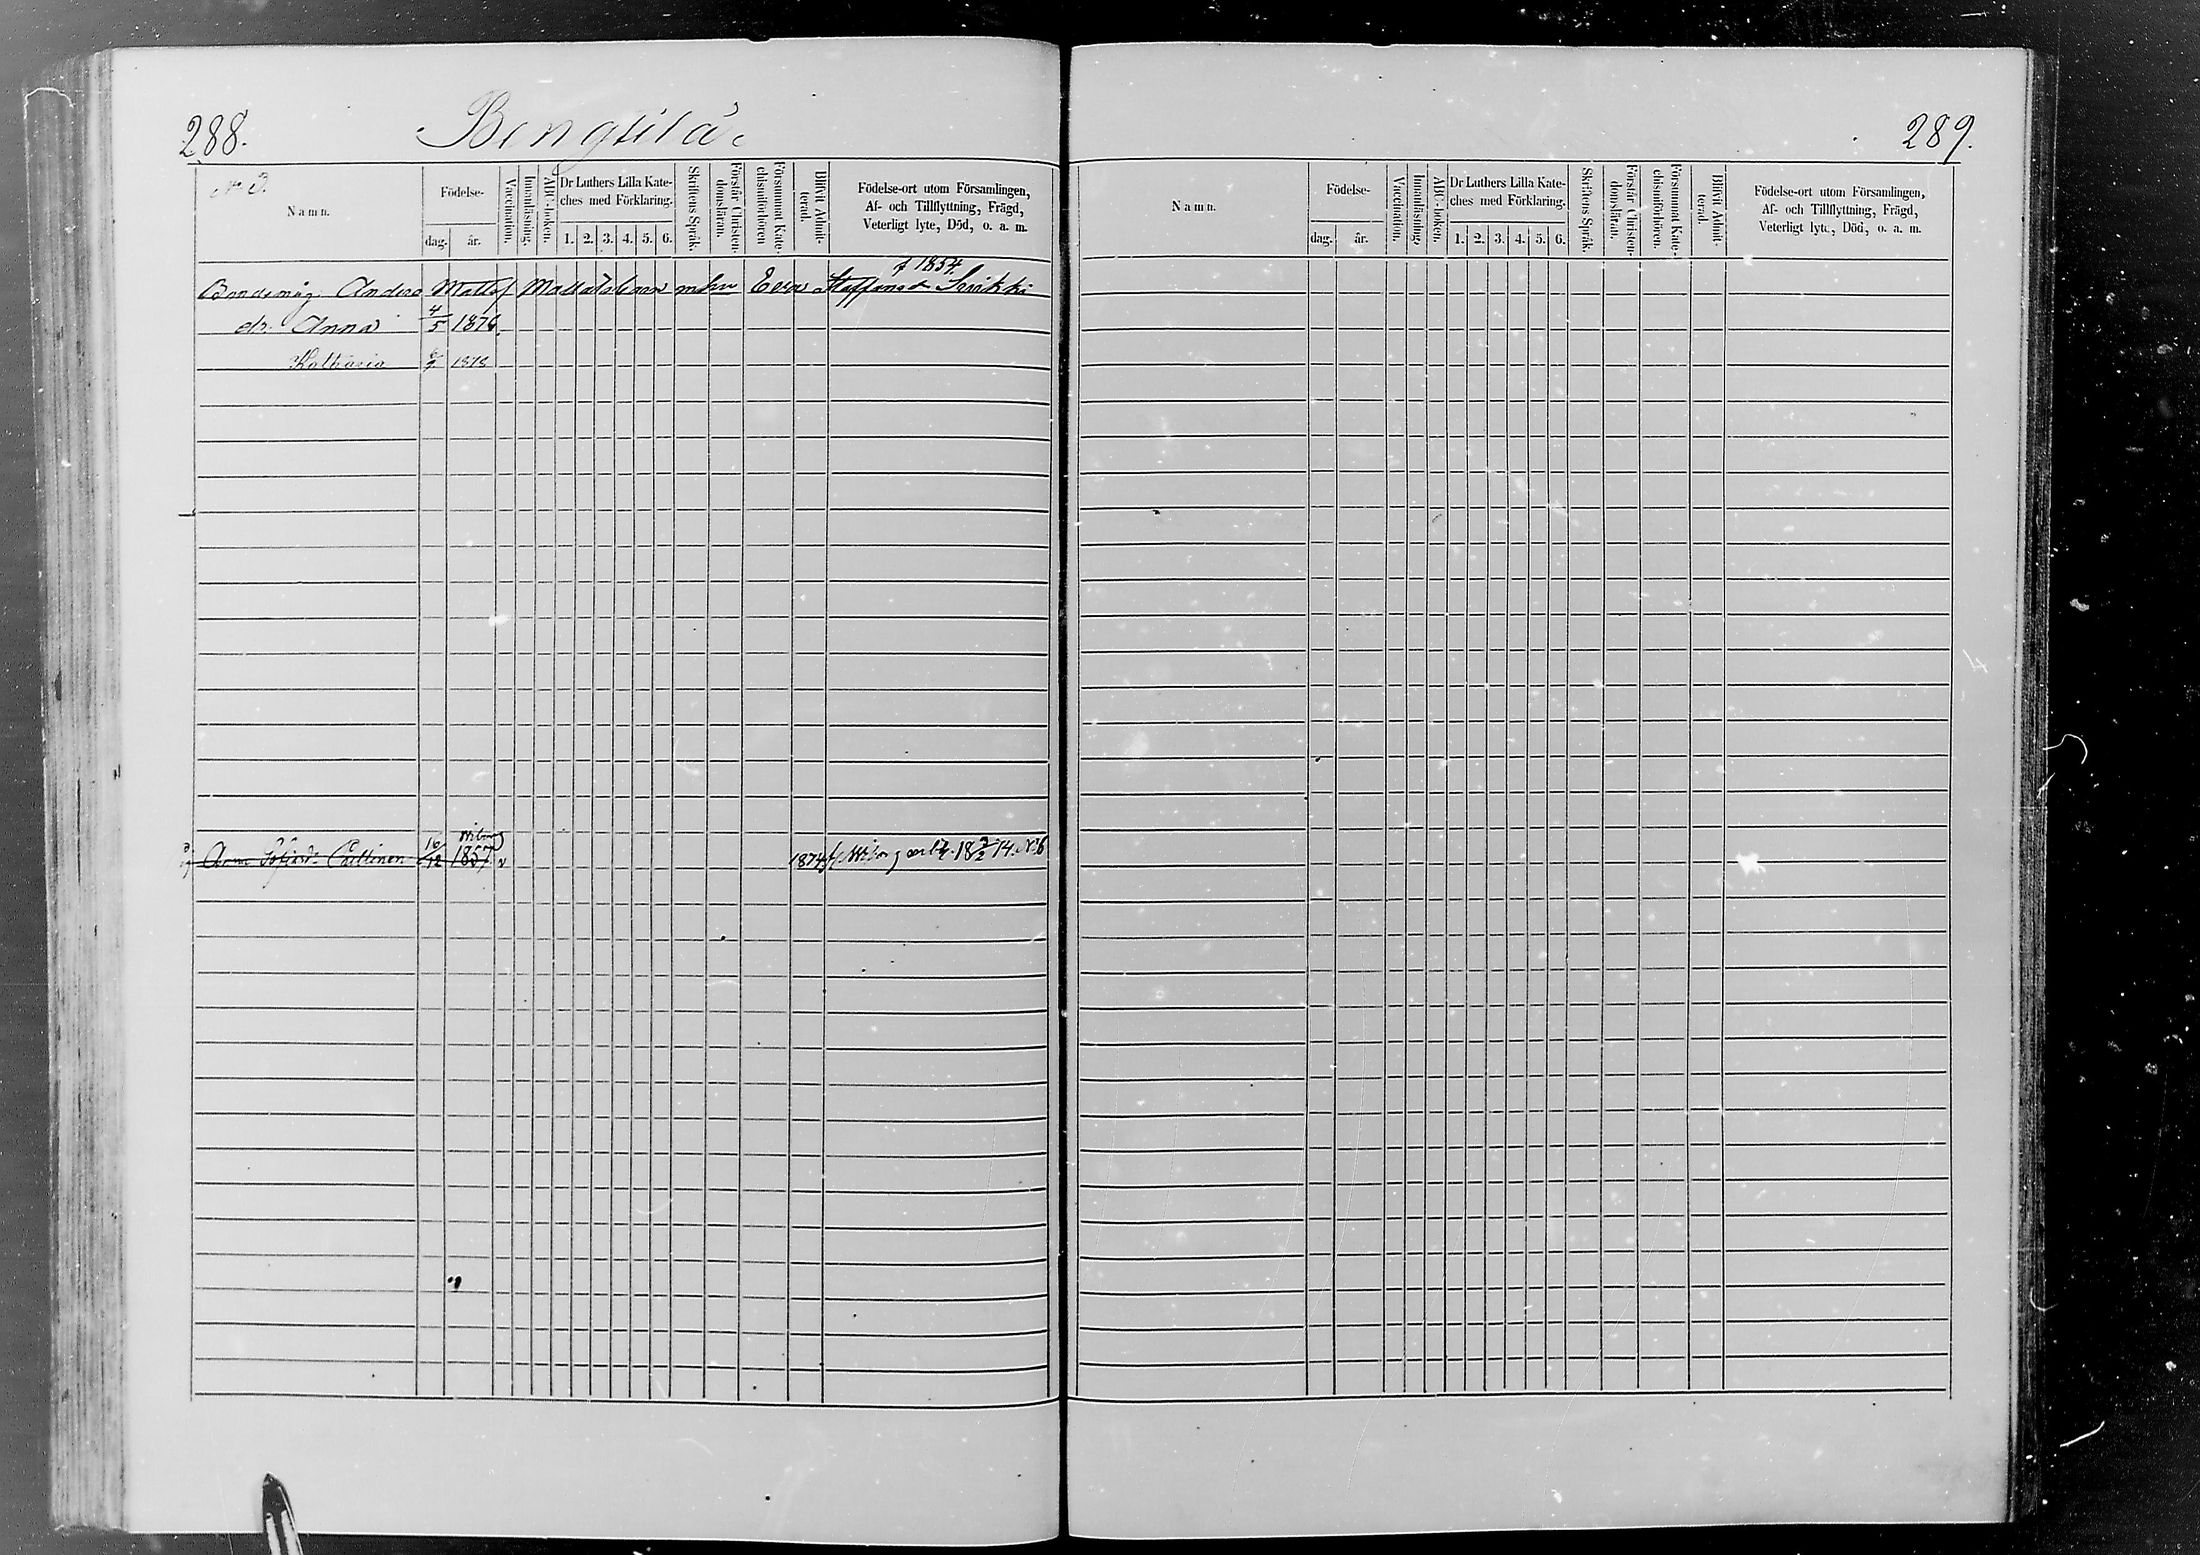 288.
Bengtilä
N:o 3.
Namn.
Födelse-
dag. år.
Vaccination.
Innanläsning.
ABC-boken.
Dr Luthers Lilla Kate-
ches med Förklaring.
1. 2. 3. 4. 5. 6.
Skriftens Språk.
Förstår Christen-
domsläran.
Försummat Kate-
chismiförhören
Blifvit Admit-
terad.
Födelse-ort utom Församlingen,
Af- och Tillflyttning, Frägd,
Veterligt lyte, Död, o. a. m.
f 1854.
Bondemåg Anders Matts
Eeva Staffansd.
dr. Anna 4/5 1876.
Katharia 1878
Wiborg
Anna Pärttinen 16/12 1857 v 1874 18 2/2 74. N:o 6
289.
Namn.
Födelse-
dag. år.
Vaccination.
Innanläsning.
ABC-boken.
Dr Luthers Lilla Kate-
ches med Förklaring.
1. 2. 3. 4. 5. 6.
Skriftens Språk.
Förstår Christen-
domsläran.
Försummat Kate-
chismiförhören.
Blifvit Admit-
terad.
Födelse-ort utom Församlingen,
Af- och Tillflyttning, Frägd,
Veterligt lyte, Död, o. a. m.